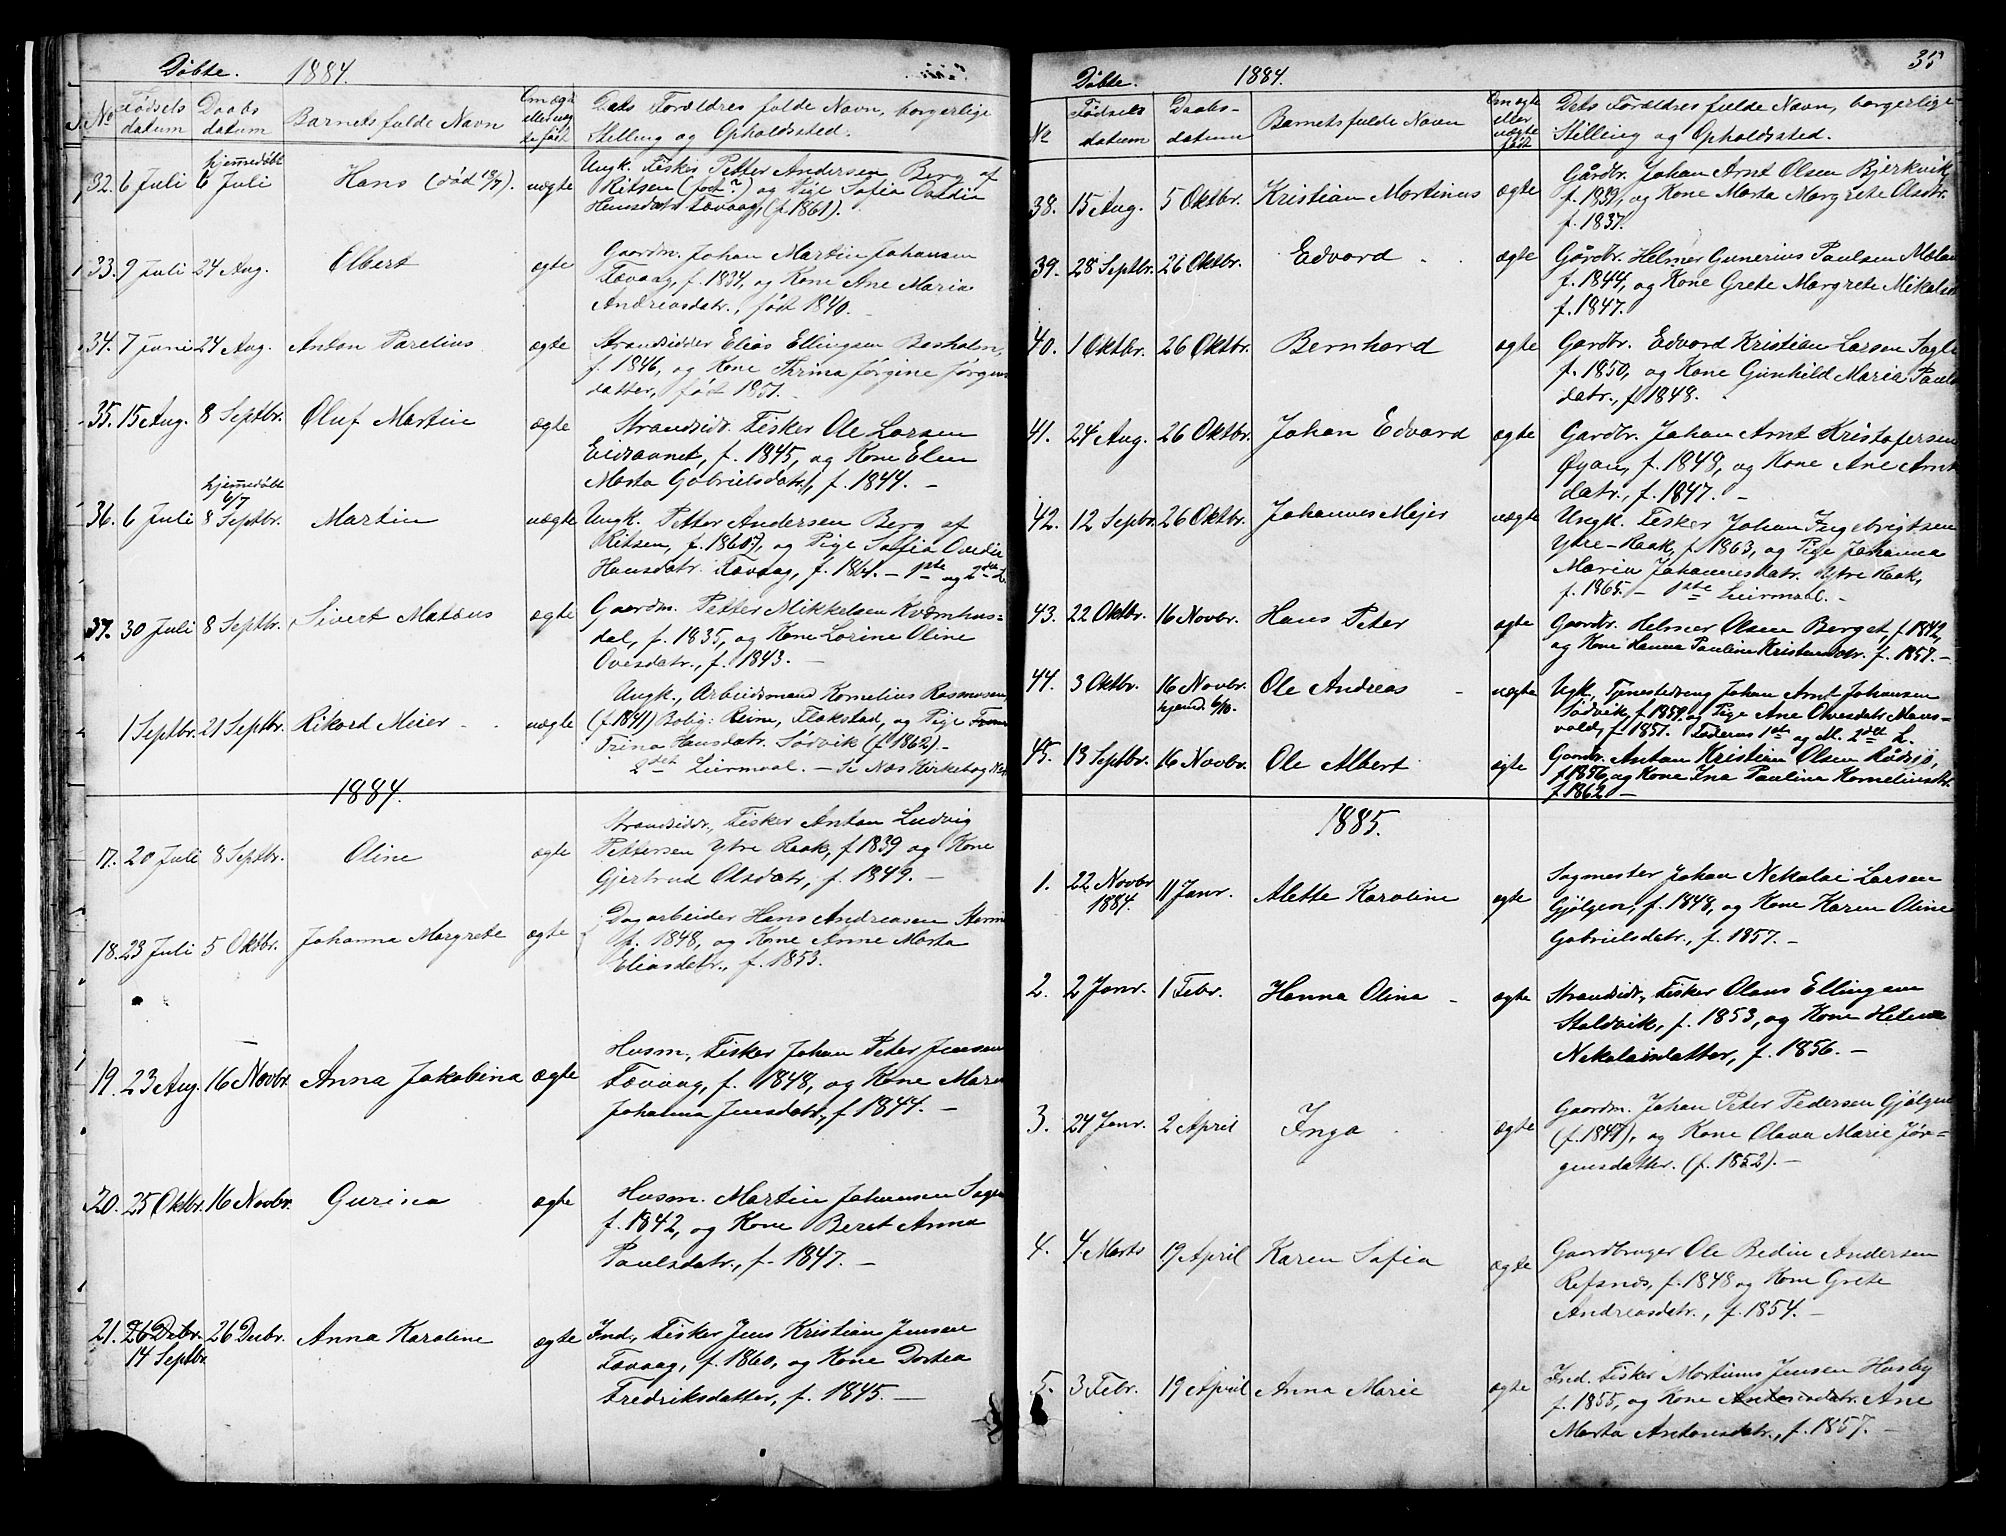 Døbte. 1884.
No Fødsels datum Daabs datum Barnets fulde Navn Om ægte eller uægte født Dets Forældres fulde Navn, borgerlige Stilling og Opholdssted.
32. 6 Juli hjemmedøbt 6 Juli Hans (død 18/7). uægte Ungk. Fisker Petter Andersen Berg af
Ritsen (født ?) og Pige Sofia Ovidia
Hansdatr. Tøvaag, (f. 1861).
33. 9 Juli 24 Aug. Elbert ægte Gaardm. Johan Martin Johansen
Tøvaag, f. 1834, og Kone Ane Maria
Andreasdatr., født 1840.
34. 7 Juni 24 Aug. Anton Parelius ægte Strandsidder Elias Ellingsen Bosholm,
f. 1846, og Kone Thrina Jørgine Jørgens
datter, født 1851.
35. 15 Aug. 8 Septbr. Oluf Martin ægte Strandsidr. Fisker Ole Larsen
Eidsavnet, f. 1845, og Kone Elen
Marta Gabrielsdatr., f. 1844. –
36. 6 Juli hjemmedøbt 6/7 8 Septbr. Martin uægte Ungk. Petter Andersen Berg af
Ritsen, f. 1860?, og Pige Sofia Ovedia
Hansdatr. Tøvaag, f. 1861. – 1ste og 2det L.
37. 30 Juli 8 Septbr. Sivert Mataus ægte Gaardm. Petter Mikkelsen Kværnhus=
dal, f. 1835, og Kone Lorine Oline
Ovesdatr., f. 1843. –
1 Septbr. 21 Septbr. Rikard Meier - uægte Ungk., Arbeidsmand Kornelius Rasmusen,
(f. 1841) Bolig: Reine, Flakstad, og Pige
Trina Hansdatr. Sødvik (f. 1862). –
2det Leiermaal. – Se Næs Kirkebog
1884.
17. 20 Juli 8 Septbr. Oline ægte Strandsidr., Fisker Anton Ludvig
Pettersen Ytre Raak, f 1839 og Kone
Gjertrud Olsdatr, f. 1849. –
18. 23 Juli 5 Oktbr. Johanna Margrete ægte Dagarbeider Hans Andreasen
f. 1848, og Kone Anne Marta
Eliasdatr., f. 1853.
19. 23 Aug. 16 Novbr. Anna Jakobina ægte Husm., Fisker Johan Peter Jensen
Tøvaag, f. 1848, og Kone Maren
Johanna Jensdatr, f 1844. –
20. 25 Oktbr. 16 Novbr. Gurina ægte Husm. Martin Johansen
f. 1842, og Kone Beret Anna
Paulsdatr., f. 1847. –
21. 26 Decbr. 14 Septbr. 26 Decbr. Anna Karoline ægte Ind., Fisker Jens Kristian Jensen
Tøvaag, f. 1860, og Kone Dortea
Fredriksdatter, f. 1845. –
35
Døbte. 1884.
No Fødsels datum Daabs- datum Barnets fulde Navn Om ægte eller uægte født Dets Forældres fulde Navn, borgerlige Stilling og Opholdssted.
38. 15 Aug. 5 Oktbr. Kristian Martinus ægte Gårdbr. Johan Arnt Olsen Bjerkvik,
f. 1839, og Kone Marta Margrete Olsdtr.
f. 1837.
39. 28 Septbr. 26 Oktbr. Edvard ægte Gårdbr. Helmer Gunerius Paulsen
f. 1844, og Kone Grete Margrete Mikalsd
f. 1847.
40. 1 Oktbr. 26 Oktbr. Bernhard ægte Gardbr. Edvard Kristian Larsen
f. 1850, og Kone Gunhild Maria Pauls
datr., f 1848.
41. 24 Aug. 26 Oktbr. Johan Edvard ægte Gardbr. Johan Arnt Kristofersen
Øyan, f. 1849, og Kone Ane Arnt
datr., f. 1847. –
42. 12 Sepbr. 26 Oktbr. Johannes Mejer uægte Ungk. Fisker Johan Ingebrigtsen
Ytre-Raak, f. 1863, og Pige Johanna
Maria Johannesdatr. Ytre Raak,
f. 1865. – 1ste Leirmaal. –
43. 22 Oktbr. 16 Novbr. Hans Peter ægte Gaardbr. Helmer Olsen Berget, f. 1842,
og Kone Hanna Pauline Kristensdtr. f. 1857. –
44. 3 Oktbr. 16 Novbr. hjemd. 6/10. Ole Andreas - uægte Ugk, Tjenestedreng Johan Arnt Johansen
Sødvik, f. 1859, og Pige Ane Olivesdatr. Maus-
vold, f. 1851. Faderens 1st og M. 2det L.
45. 13 Septbr. 16 Novbr. Ole Albert ægte Gardbr. Anton Kristian Olsen Rødsjø,
f. 1856, og Kone Ina Paulina Korneliusdtr.
f. 1862 –
1885.
1. 22 Novbr 1884. 11 Janr. Alette Karoline ægte Sagmester Johan Nekolai Larsen
Gjølgen, f. 1848, og Kone Karen Oline
Gabrielsdatr., f. 1857. –
2. 2 Janr. 1 Febr. Hanna Olina - ægte Strandsidr., Fisker Olaus Ellingsen
Staldvik, f. 1853, og Kone Helena
Nekolaisdatter, f. 1856. –
3. 24 Janr. 2 April Inga ægte Gaardm. Johan Peter Pedersen Gjølgen
(f. 1847), og Kone Olava Marie Jør=
gensdatter. (f. 1852). –
4. 4 Marts 19 April Karen Sofia ægte Gaardbruger Ole Bedin Andersen
Refsnes, f. 1848 og Kone Grete
Andreasdatr., f. 1854. –
5. 3 Febr. 19 April Anna Marie ægte Ind. Fisker Martinus Jensen Husby
f. 1855, og Kone Antonsdatr. Ane
Marta Antonsdatr., f. 1857. –